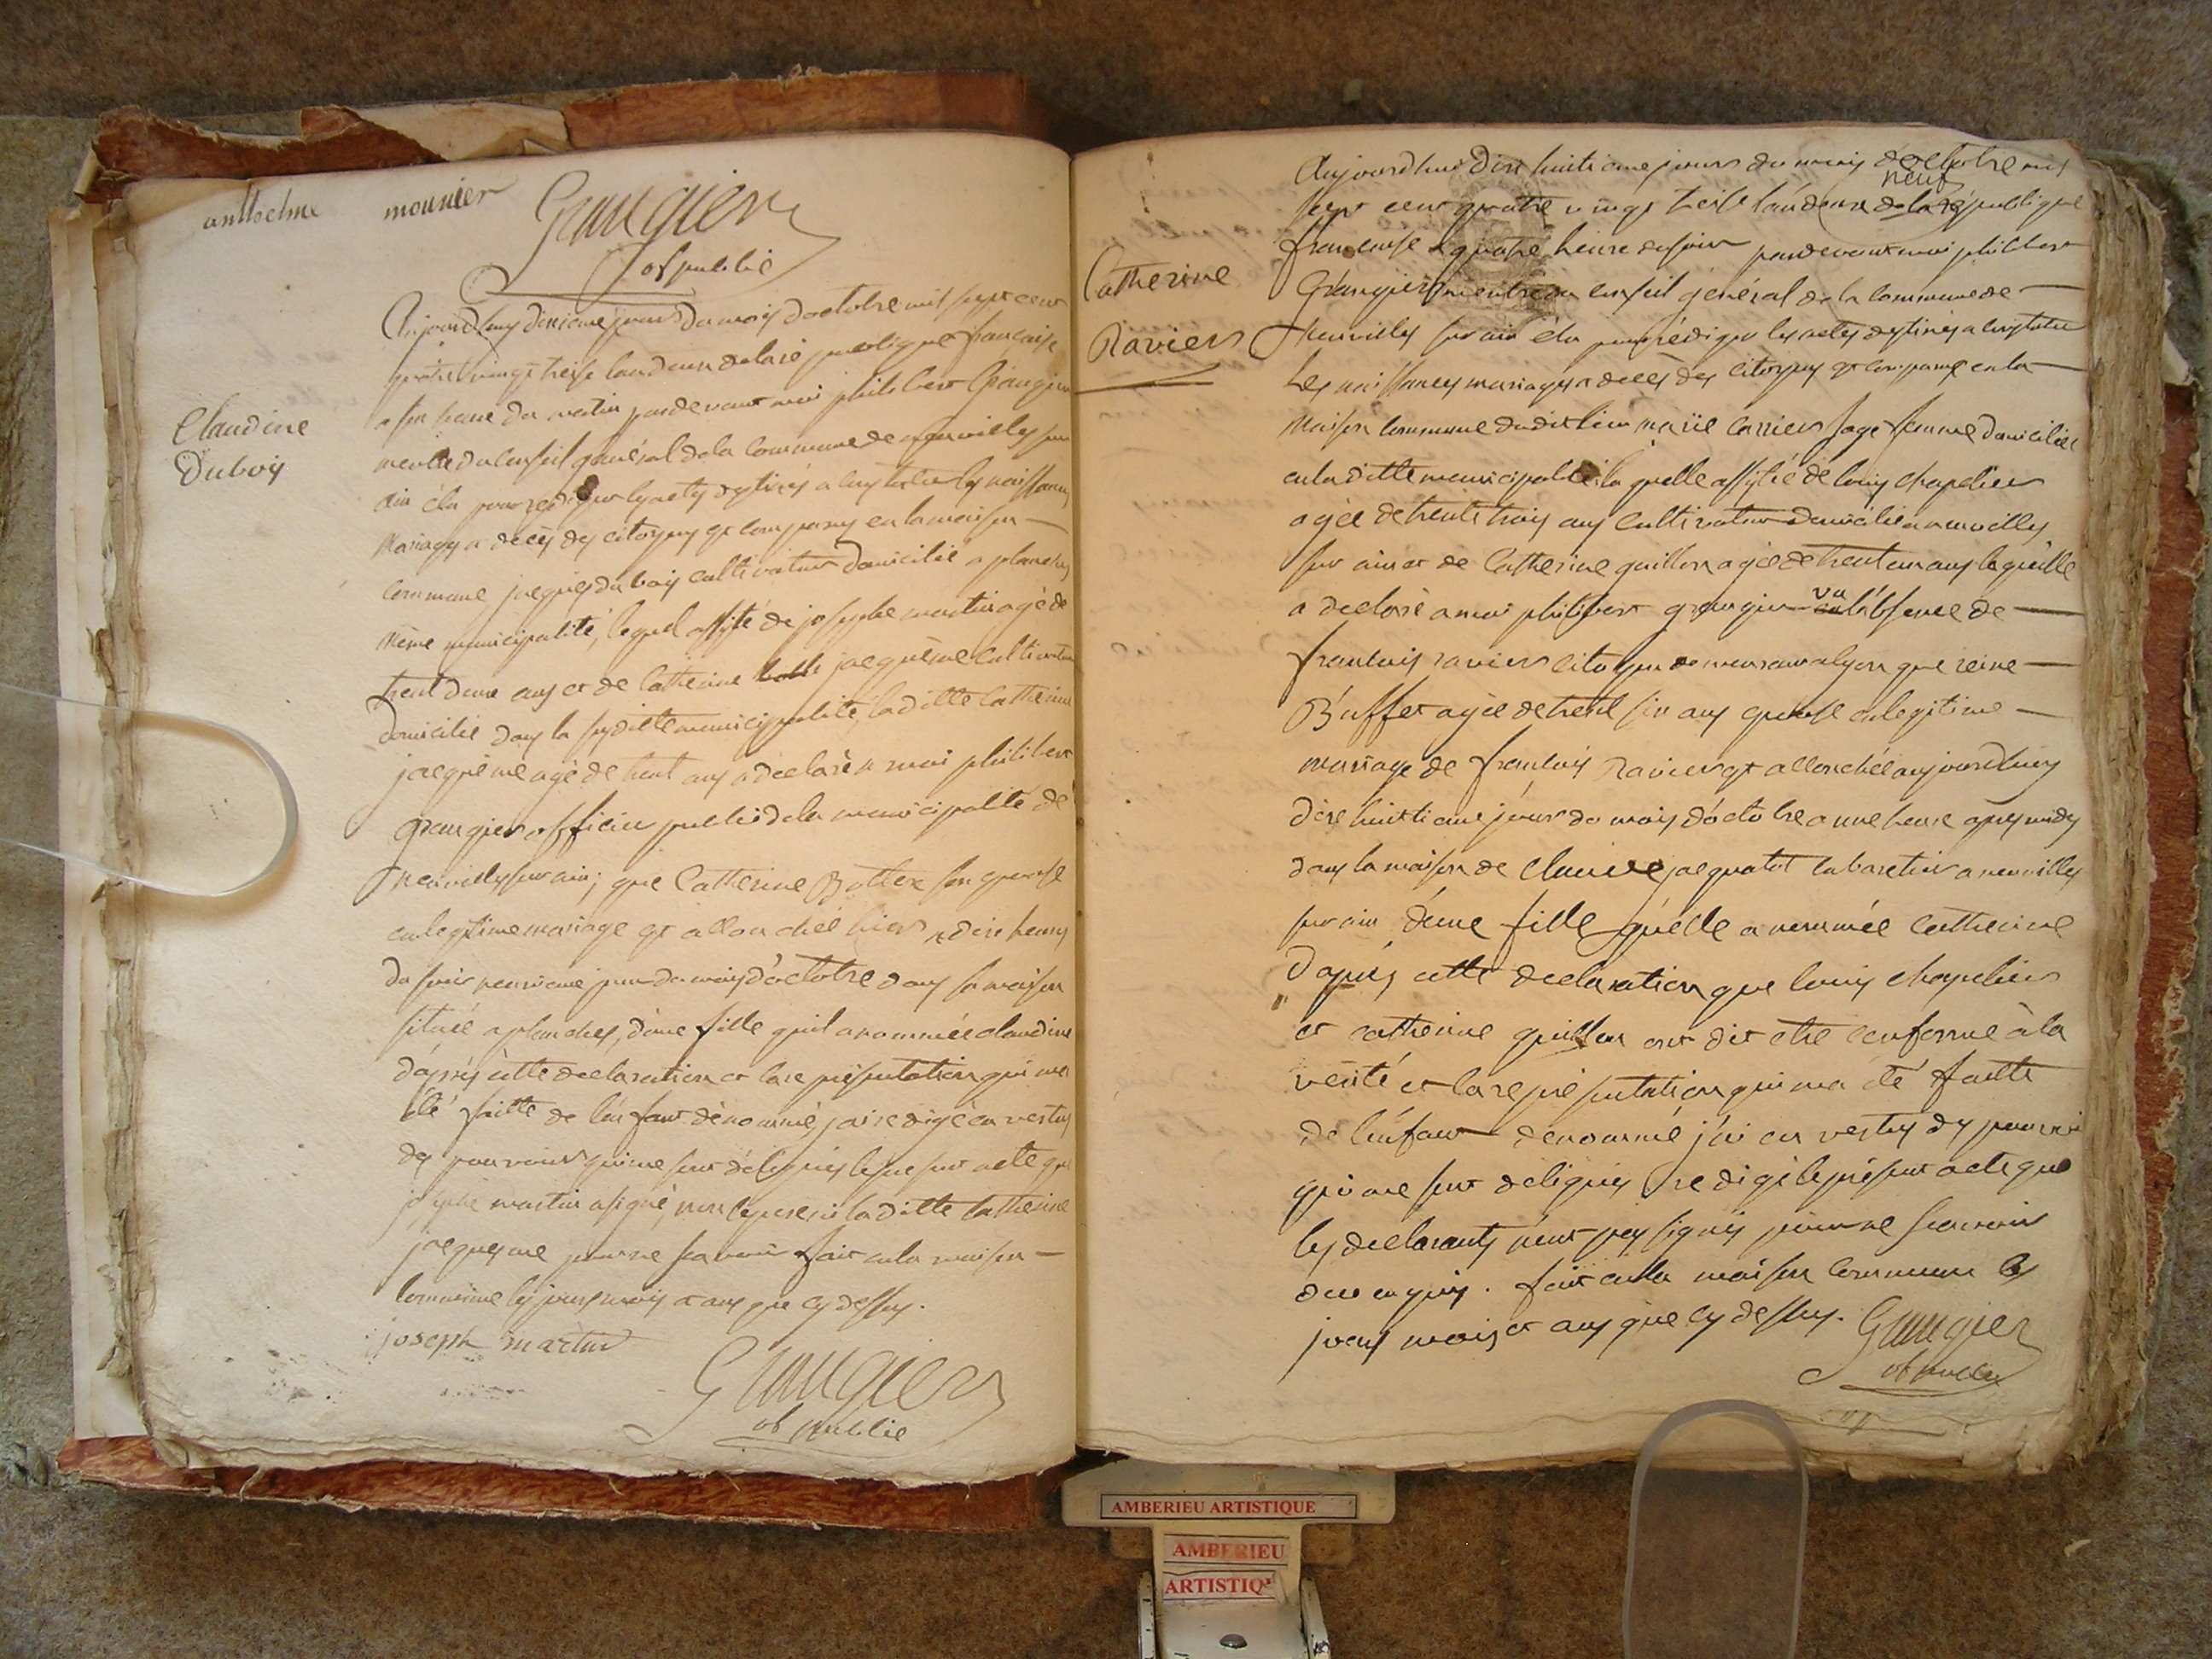 anthelme mounier Grangier
of public
Claudine
Dubois
Aujourdhuy dixieme jours du mois doctobre mil sept cent
quatre vingt treise lan deux de la republique francaise
a six heure du matin pardevant moi philibert Grangier
membre du conseil général de la commune de neuville sur
ain élu pour rediger les actes destinés a constater les naissances
mariages et décès des citoyens est comparus en la maison
commune jacques dubois cultivateur domicilié a planches
même municipalité, lequel assisté de josephe martin agé de
trent deux ans et de Catherine jacquême cultivateur
domicilié dans la susditte municipalité, laditte Catherine
jacquême agé de trent ans a declaré a moi philibert
grangier officier public de la municipalité de
neuville sur ain; que Catherine Bottex son epouse
en legitime mariage est allouchée hier a dix heures
du soir neuvieme jour du mois doctobre dans sa maison
située a planches, d'une fille quil a nommée claudine
d'après cette declaration et la representation qui ma
été faitte de l'enfant dénommé, jai redigé en vertus
des pouvoirs qui me sont délégués le present acte que
josephe martin a signé, non lepoux ni laditte Catherine
jacquesme pour ne scavoir fait en la maison
commune les jours mois et ans que cy dessus.
joseph martin
Grangier
of public
Catherine
Raviers
Aujourdhui dix huitieme jours du mois d'octobre mil
neuf
sept cent quatre vingt treise l'an deux de la république
francaise a quatre heure du soir pardevant moi philibert
Grangier membre du conseil général de la commune de
Neuville sur ain élu pour rédiger les actes destinés a constater
les naissances mariages et décès des citoyens est comparus en la
maison commune dudit lieu marie carrier sage femme domiciliée
en laditte municipalité la quelle assisté de louis chapelier
agée de trente trois ans cultivateur domicilié a neuville
sur ain et de Catherine guillon agée de trent un ans laquelle
a declaré a moi philibert grangier vu l'absence de
francois raviers citoyen demeurant a lyon que reine
Buffet agée de trent six ans epouse en legitime
mariage de francois Raviers est allouchée aujourdhuy
dixe huittieme jours du mois d'octobre a une heure après midy
dans la maison de jacquatot cabaretier a neuville
sur ain d'une fille qu'elle a nommée Catherine
D'apres cette declaration que louis chapelier
et catherine guillon ont dit etre conforme à la
verité et la représentation qui ma été faitte
de l'enfant denommé j'ai en vertus des pouvoir
qui me sont delegués redigé le présent acte que
les declarants n'ont pas signés pour ne scavoir
de ce enquis. fait en la maison commune les
jours mois et ans que cy dessus. Grangier
of public
AMBERIEU ARTISTIQUE
AMBERIEU
ARTISTIQ